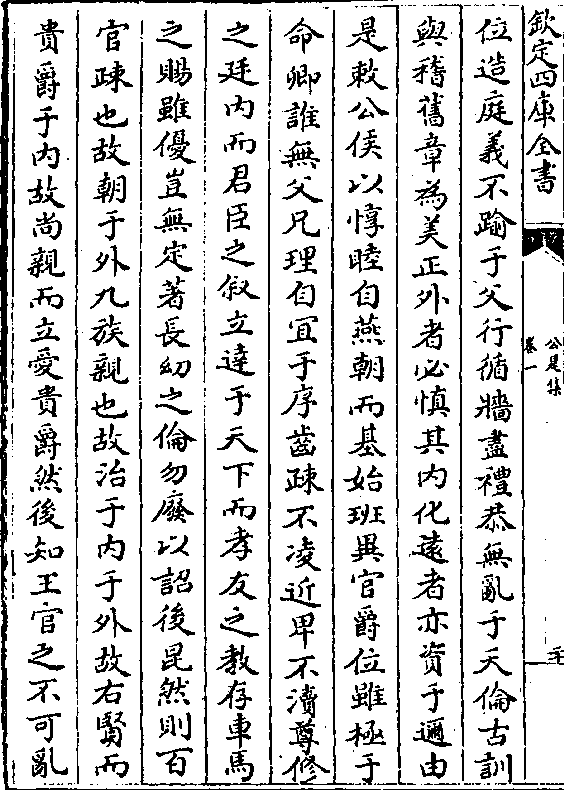 欽定四庫全書
公是集
卷一
二十
位造庭義不踰于父行循牆盡禮恭無亂于天倫古訓
與稽舊章為美正外者必慎其內化遠者亦資于邇由
是敕公侯以惇睦自燕朝而基始班異官爵位雖極于
命卿誰無父兄理自宜于序齒疎不凌近卑不瀆尊修
之廷內而君臣之叙立達于天下而孝友之教存車馬
之賜雖優豈無定著長幼之倫勿廢以詔後昆然則百
官疎也故朝于外九族親也故治于內于外故右賢而
貴爵于內故尚親而立愛貴爵然後知王官之不可亂